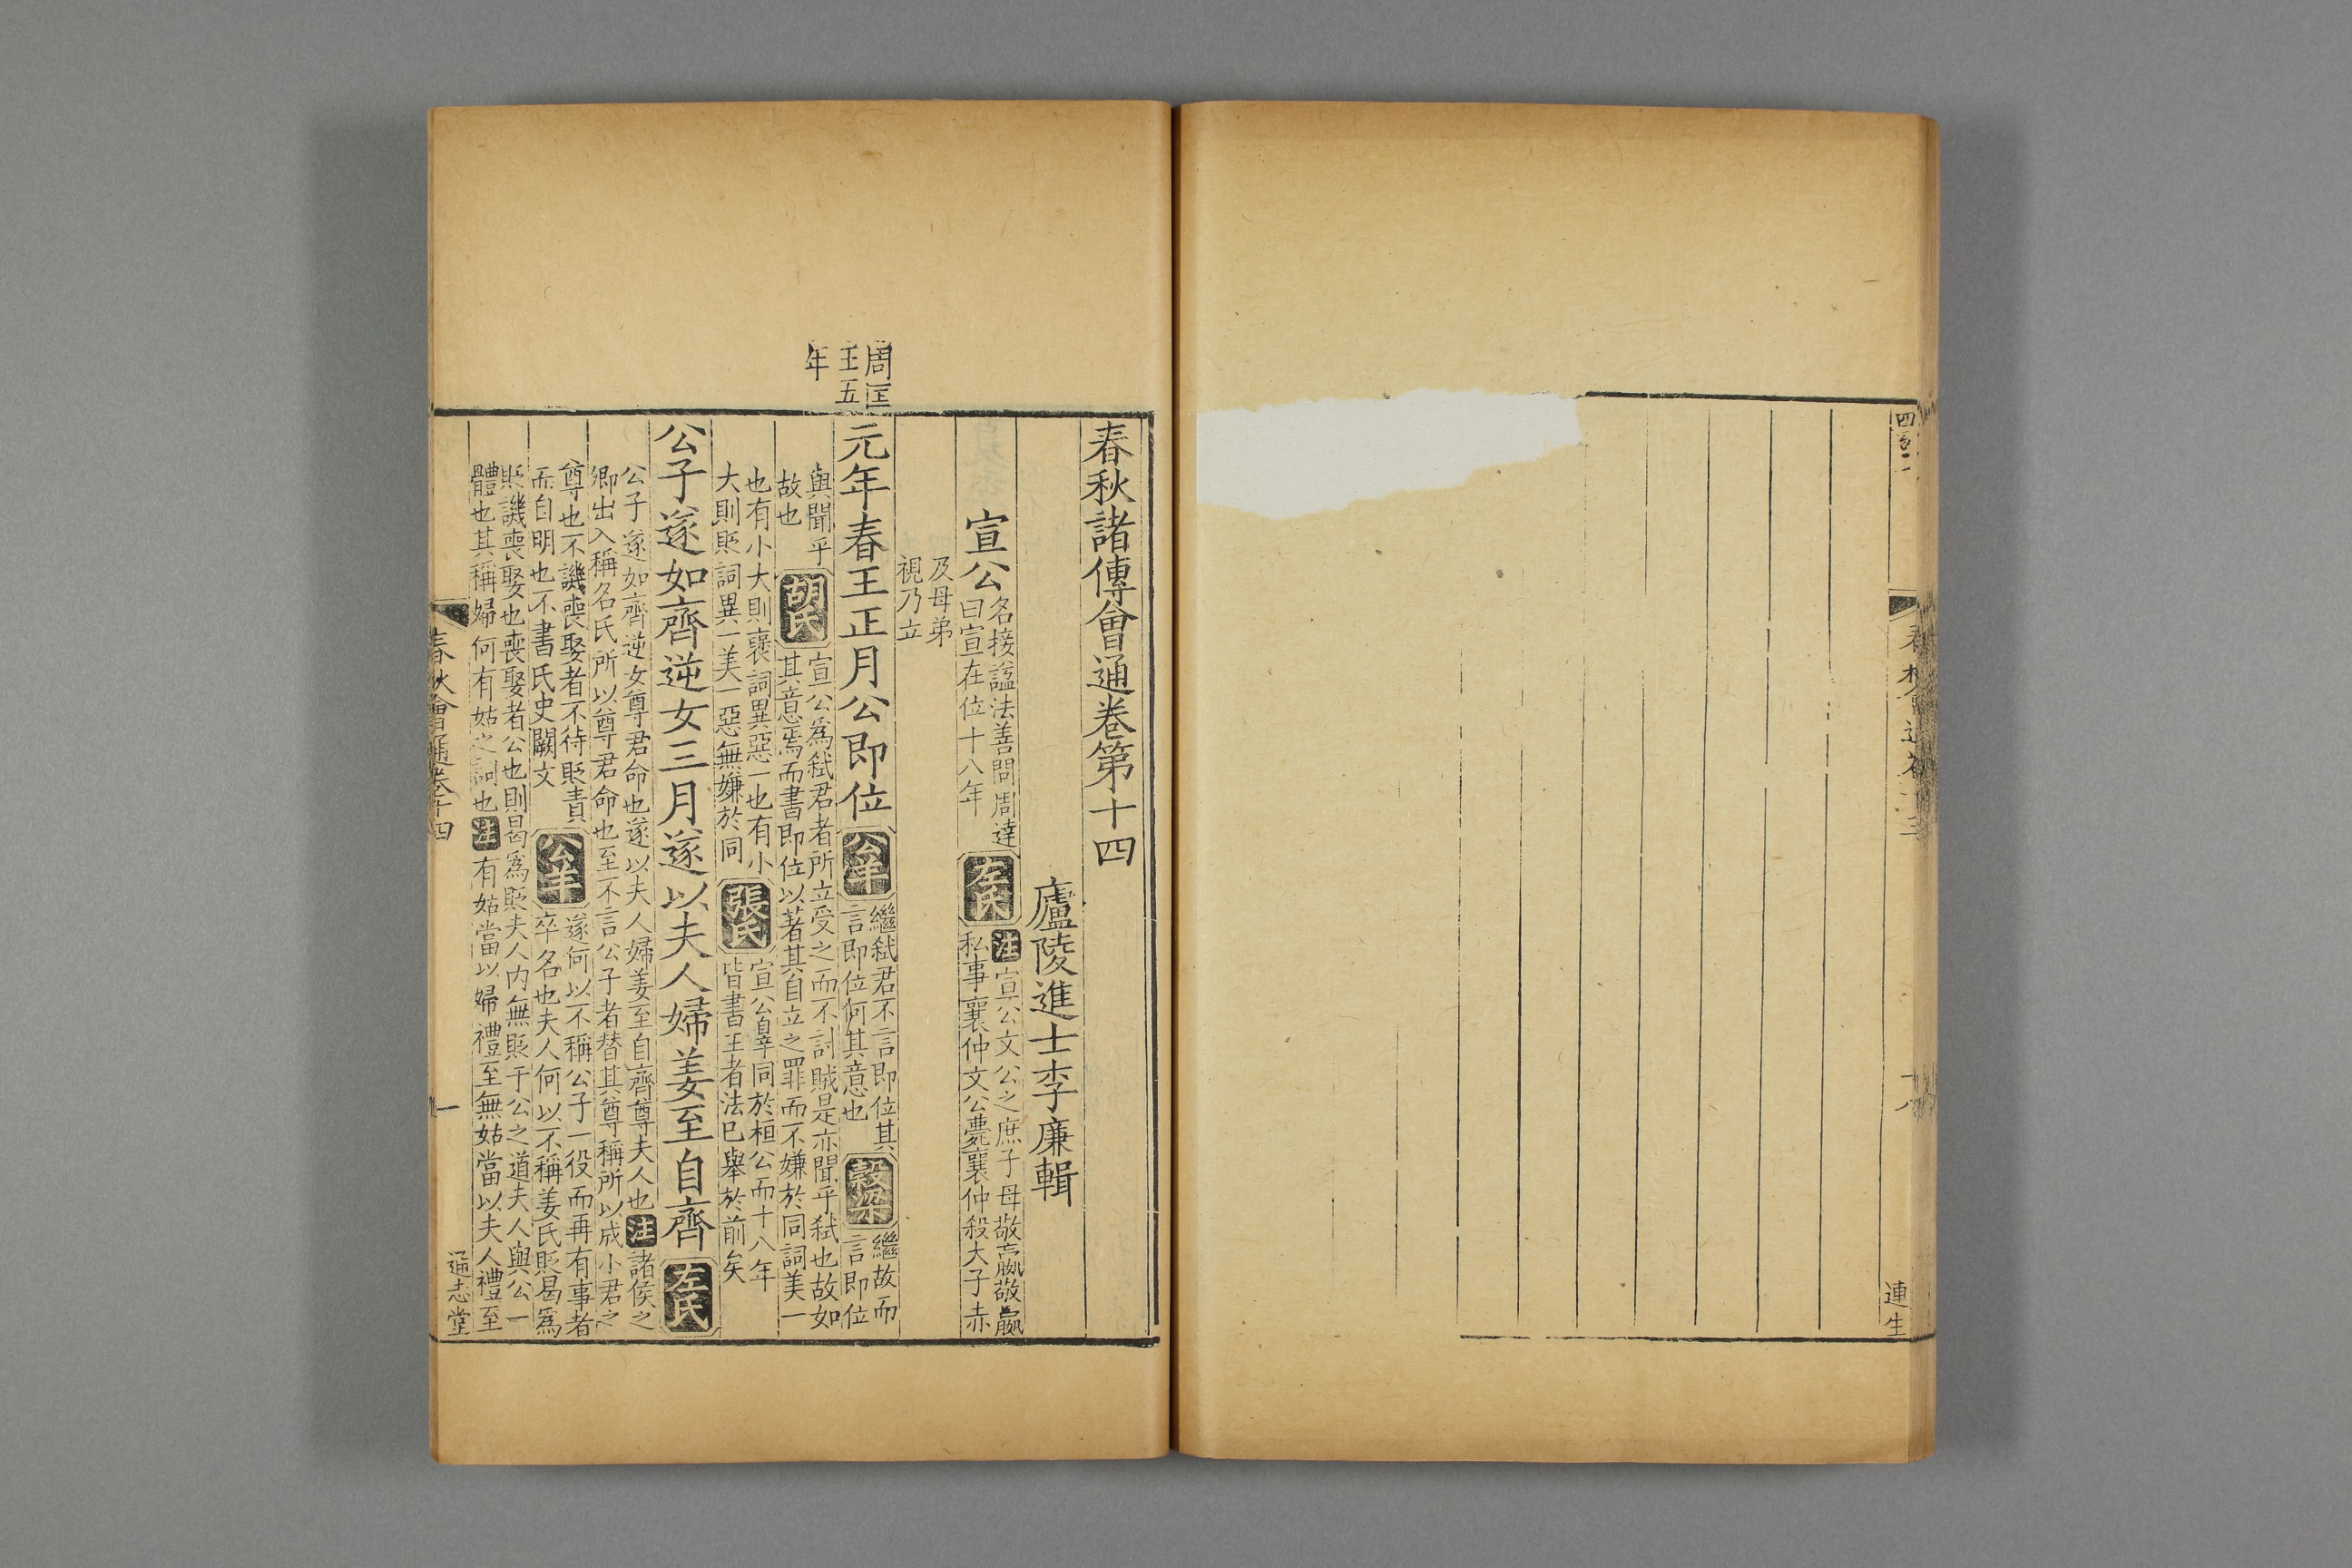 連生
春秋諸傳會通卷第十四
廬陵進士李廉輯
宣公
名接諡法善問周達
曰宣在位十八年
左氏
注宣公文公之庶子母敬嬴敬嬴
私事襄仲文公薨襄仲殺大子赤
及母弟
視乃立
周匡
王五
年
元年春王正月公即位
公羊
繼弑君不言即位其
言即位何其意也
穀梁
繼故而
言即位
與聞乎
故也
胡氏
宣公爲弑君者所立受之而不討賊是亦聞乎弑也故如
其意焉而書即位以著其自立之罪而不嫌於同詞美一
也有小大則襃詞異惡一也有小
大則貶詞異一美一惡無嫌於同
張氏
宣公辠同於桓公而十八年
皆書王者法已舉於前矣
公子遂如齊逆女三月遂以夫人婦姜至自齊
左氏
公子遂如齊逆女尊君命也遂以夫人婦姜至自齊尊夫人也注諸侯之
卿出入稱名氏所以尊君命也至不言公子者替其尊稱所以成小君之
尊也不譏喪娶者不待貶責
而自明也不書氏史闕文
公羊
遂何以不稱公子一役而再有事者
卒名也夫人何以不稱姜氏貶曷爲
貶譏喪娶也喪娶者公也則曷爲貶夫人内無貶于公之道夫人與公一
體也其稱婦何有姑之詞也注有姑當以婦禮至無姑當以夫人禮至
春秋會通卷十四
一
通志堂